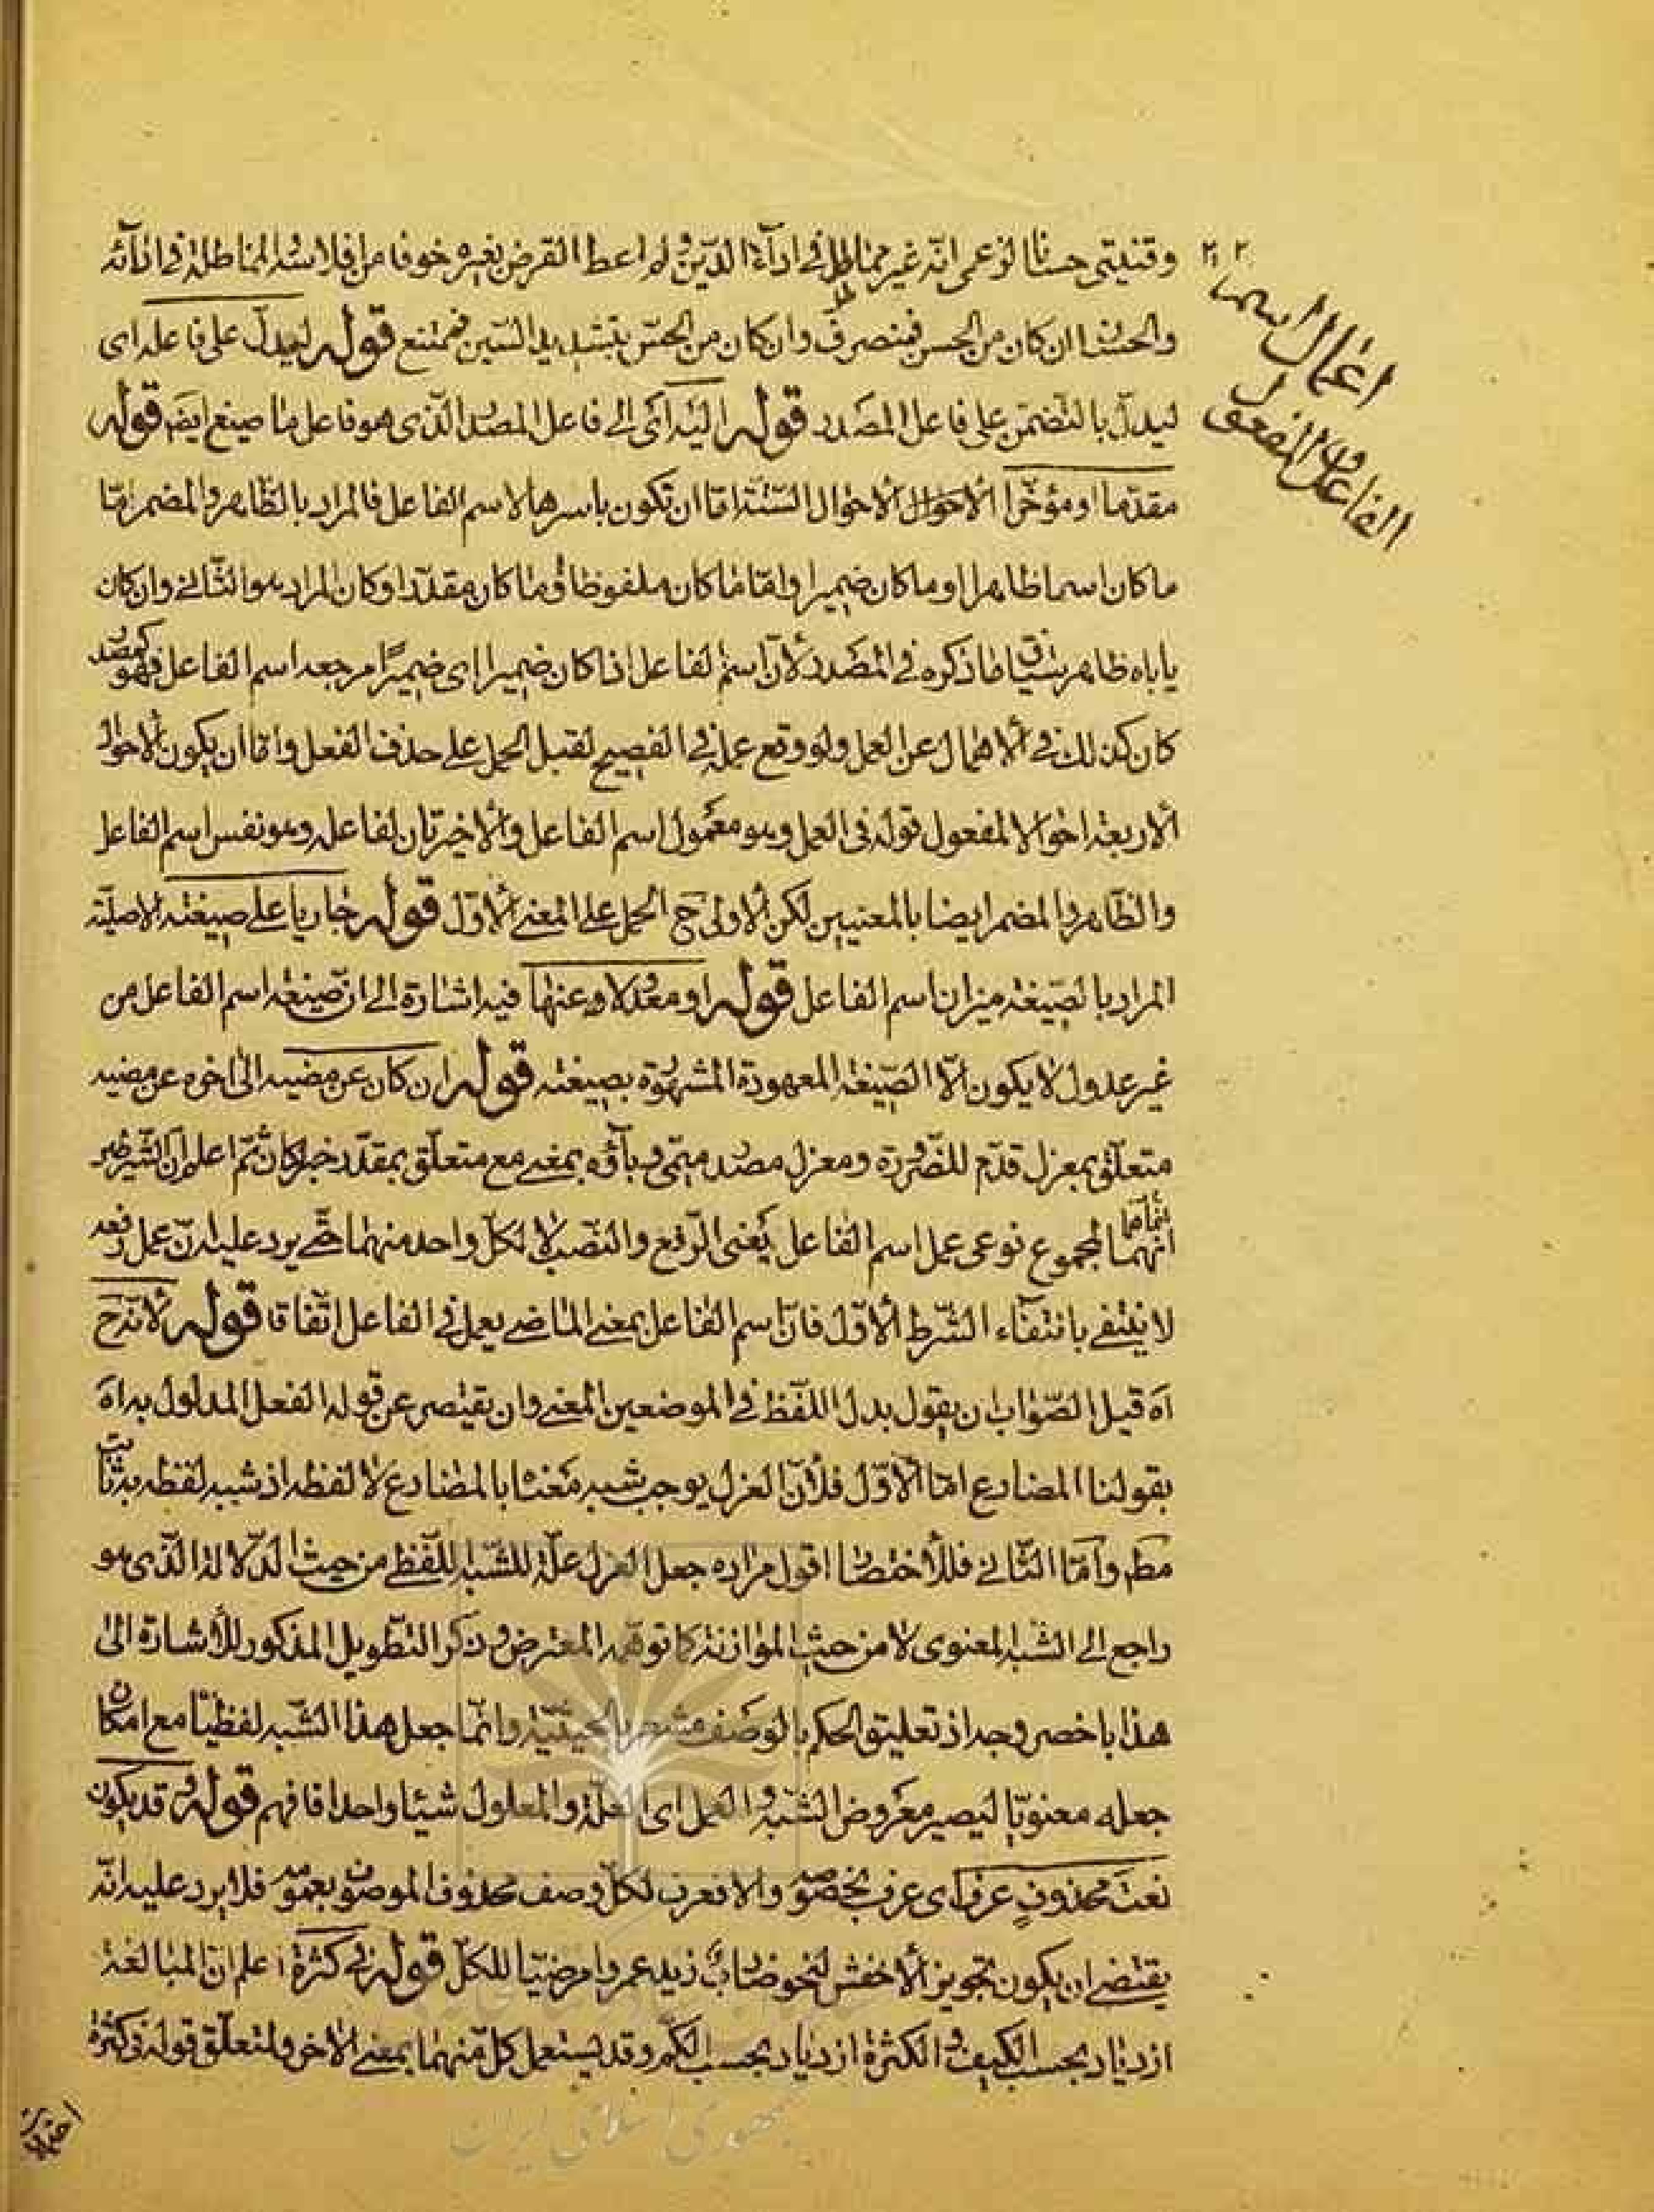 وقنيتى حسانا لزعمى انه غير مماطل فى اداء الدين ولم اعط القرض بغيره خوفا من افلاسه المماطلة فى ادائه
والحسنا ان كان من الحسن فينصرف وان كان من الحس بتشديد السين فيمتنع قوله ليدل على فاعله اى
ليدل بالتضمن على فاعل المصدر قوله اليه اى الى فاعل المصدر الذى هو فاعل ما صيغ ايضم قوله
مقدما او مؤخرا الاحوال الاحوال الستة اما ان تكون باسرها لاسم الفاعل فالمراد بالظاهر والمضمر اما
ما كان اسما ظاهرا او ما كان ضميرا واما ما كان ملفوظا وما كان مقدرا وكان المراد هو الثانى وان كان
ياباه ظاهر سياق ما ذكره فى المصدر لان اسم الفاعل اذا كان ضميرا اى ضميرًا مرجعه اسم الفاعل فهو كمصدر
كان كذلك فى الاهمال عن العمل ولو وقع عمله فى الفصيح لقبل الحمل على حذف الفعل واما ان يكون الاحوال
الاربعة احوالا لمفعول قوله فى العمل وهو معمول اسم الفاعل والاخيرتان لفاعله وهو نفس اسم الفاعل
والظاهر والمضمر ايضا بالمعنيين لكن الاولى ح الحمل على المعنى الاول قوله جاريا على صيغته الاصلية
المراد بالصيغة ميزان اسم الفاعل قوله او معدولا وعنها فيه اشارة الى ان صيغة اسم الفاعل من
غير عدول لا يكون الا الصيغة المعهودة المشهورة بصيغته قوله ان كان عن مضيه الى اخره عن مضيه
متعلق بمعزل قدم للضرورة ومعزل مصدر ميمى وباؤه بمعنى مع متعلق بمقدر خبر كان ثم اعلم ان الشرطين
انما هما لمجموع نوعى عمل اسم الفاعل يعنى الرفع والنصب لا لكل واحد منهما حتى يرد عليه ان عمل رفعه
لا ينتفى بانتفاء الشرط الاول فان اسم الفاعل بمعنى الماضى يعمل فى الفاعل اتفاقا قوله لانه ح
اه قيل الصواب ان يقول بدل اللفظ فى الموضعين المعنى وان يقتصر عن قوله الفعل المدلول به اه
بقولنا المضارع اما الاول فلان العزل يوجب شبه معنا بالمضارع لا لفظه اذ شبه لفظه به ثابت
مطم واما الثانى فللاختصا اقول مراده جعل العزل علة للشبه اللفظى من حيث الدلالة الذى هو
راجع الى الشبه المعنوى لا من حيث الموازنة كما توهمه المعترض وذكر التطويل المذكور للاشارة الى
هذا باخصر وجه اذ تعليق الحكم بالوصف مشعر بالحيثية وانما جعل هذا الشبه لفظيا مع امكان
جعله معنويا ليصير معروض الشبه والعمل اى العلة والمعلول شيئا واحدا فافهم قوله وقد يكون
نعت محذوف عرف اى عرف بخصوصه والا فعرف لكل وصف محذوف الموصوف بعمومه فلا يرد عليه انه
يقتضى ان يكون تجويز الاخفش لنحو ضارب زيد عمرا مرضيا للكل قوله فى كثرة اعلم ان المبالغة
ازدياد بحسب الكيف والكثرة ازدياد بحسب الكم وقد يستعمل كل منهما بمعنى الاخر ولتعلق قوله فى كثرة
٢٠٢
اعمال اسم
الفاعل والمفعول
جمهورى اسلامى ايران